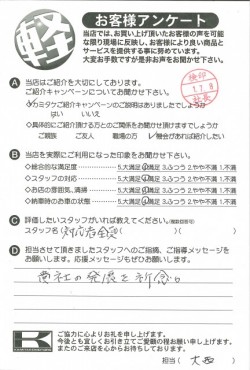 軽
お客様アンケート
当店では、お買い上げ頂いたお客様の声を可能
な限り現場に反映し、お客様により良い商品と
サービスを提供する事に努めています。
大変お手数ですが是非お声をお聞かせ下さい。
A 当店はご紹介を大切にしております。
ご紹介キャンペーンについてお聞かせ下さい。
◇カミタケご紹介キャンペーンのご説明はありましたでしょうか
はい いいえ
◇具体的にご紹介頂ける方とのご関係をお聞かせ頂けますでしょうか
ご親族 ご友人 職場の方 機会があれば紹介したい
B 当店を実際にご利用になった印象をお聞かせ下さい。
◇総合的な満足度 5.大満足 4.満足 3.ふつう 2.やや不満 1.不満
◇スタッフの対応 5.大満足 4.満足 3.ふつう 2.やや不満 1.不満
◇お店の雰囲気、清掃 5.大満足 4.満足 3.ふつう 2.やや不満 1.不満
◇納車時のお車の状態 5.大満足 4.満足 3.ふつう 2.やや不満 1.不満
C 評価したいスタッフがいれば教えてください。(複数回答可)
スタッフ名( 対応者全員 )
D 担当させて頂きましたスタッフへのご指摘、ご指導メッセージを
お願いします。応援メッセージもぜひお願いします。
貴社の発展を祈念。
K
ご協力に心よりお礼を申し上げます。
今後とも宜しくお引き立てご愛顧の程お願い申し上げます。
またのご来店を心からお待ちしております。
担当( 大西 )